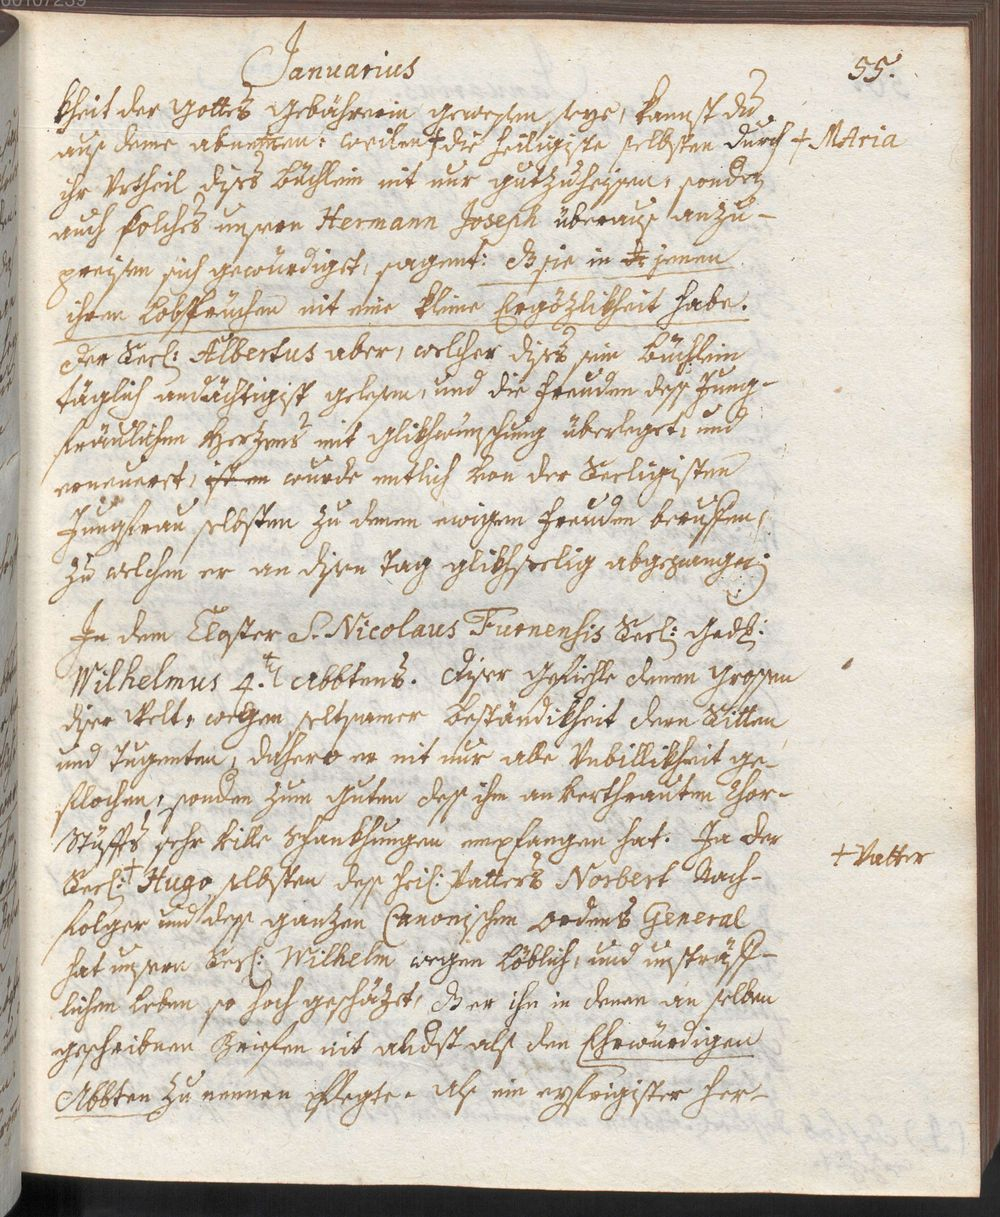 00107239
Januarius
55.
kheit der Gottes gebährerin gewesen seye, kanst du
aus deme abnemen: weilen + die heiligiste selbsten durch + MAria
ihr Urtheil dises büchlein nit nur gutzuheissen, sonder
auch solches unsern Hermann Joseph überaus anzu-
preisen sich gewürdiget, sagent: d sie in jenen
ihren Lobsprüchen nit eine kleine Ergözlikheit habe.
der Seel: Albertus aber, welcher dises sein büchlein
täglich andächtigist gelesen, und die freuden dess Jung-
fräulichen Herzens mit glikhwünschung überleget, und
erneueret, wurde entlich von der Seeligisten
Jungfrau selbsten zu denen ewigen freuden beruffen,
zu welchen er an disen Tag glikhseelig abgegangen.
In dem Closter S. Nicolaus Furnensis Seel: gedk:
Wilhelmus 4.te Abbtens. diser gefiehle denen grossen
diser Welt, wegen seltsamer beständikheit deren Sitten
und Tugenten, dahero er nit nur alle Unbillikheit ge-
flochen, sonder zum guten dess ihm anverthrauten Chor-
Stüffts sehr ville Schankhungen empfangen hat. Ja der
Seel: + Hugo selbsten dess heil: Vatters Norbert Nach- + Vatter
folger und dess ganzen Canonischen ordens General
hat unsern Seel: Wilhelm wegen löblich, und unsträff-
lichen leben so hoch geschäzet, d er ihn in denen an selben
geschribnen briefen nit andst als den Ehrwürdigen
Abbten zu nennen pflegte. als ein eyfrigister her-